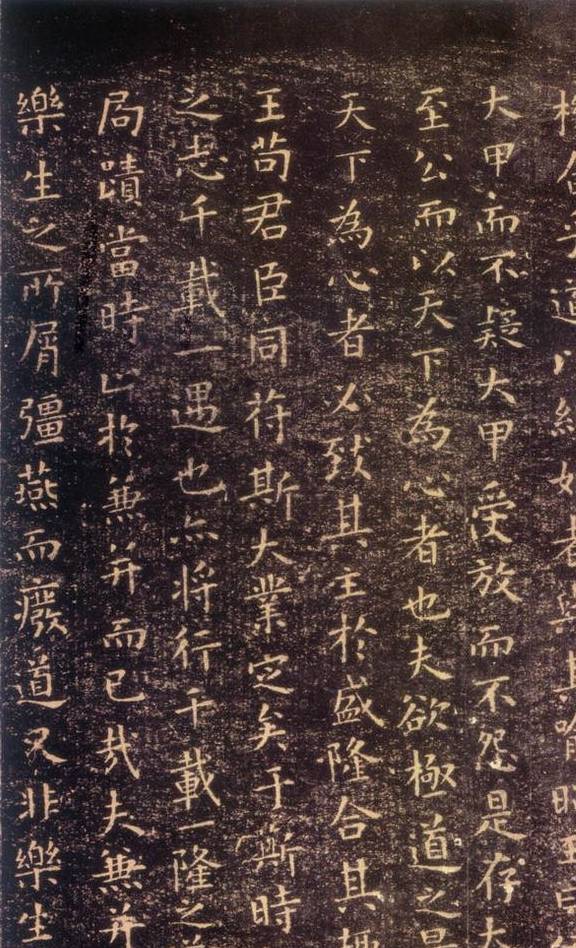 合乎道以終始者與其喻昭王
大甲而不疑大甲受放而不怨是存大
至公而以天下為心者也夫欲極道之
天下為心者必致其主於盛隆合其
王苟君臣同苻斯大業定矣于斯時
之志千載一遇也亦將行千載一隆之
局蹟當時止於兼并而已哉夫兼并
樂生之所屑彊燕而廢道又非樂生